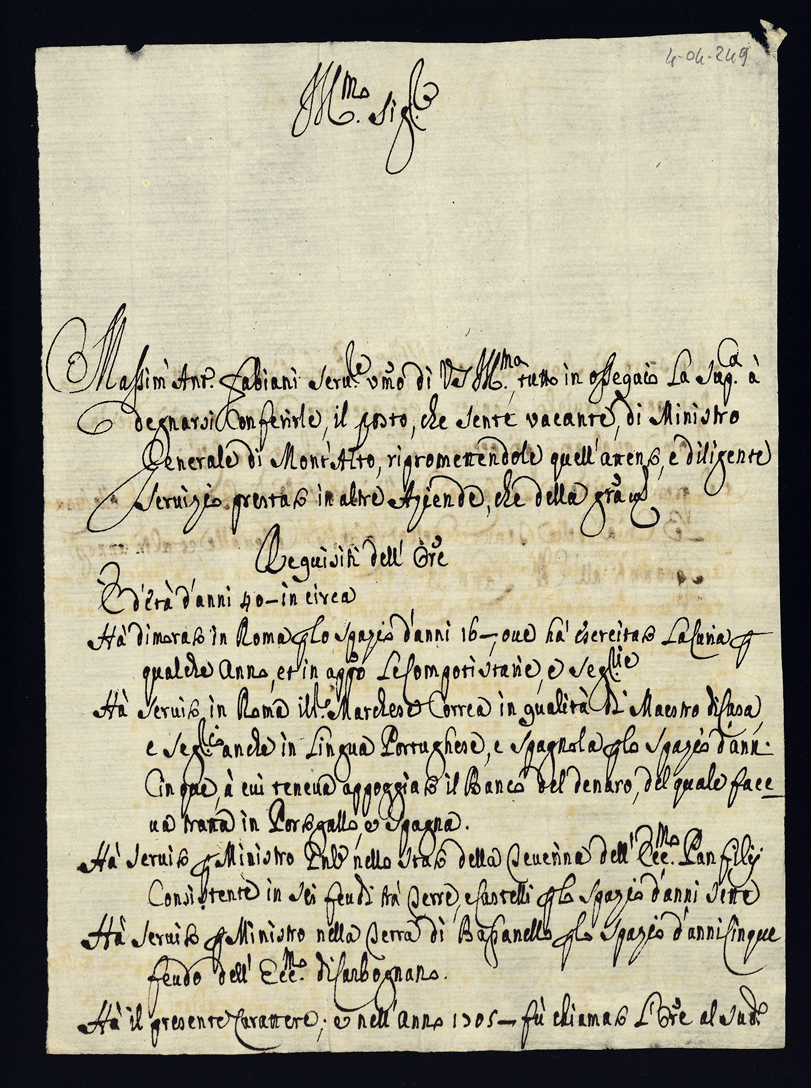 4-04-249
Ill.mo Sig.re
Massim' Ant.o Fabiani Serv.re um̃o di V.S. Ill.ma, tutto in ossequio La Sup.ca à
degnarsi Conferirle, il posto, che sente vacante, di Ministro
Generale di Mont'Alto, ripromettendole quell'attento, e diligente
Servizio prestato in altre Aziende, che della gr̃a
Requisiti dell' Or̃e
È d'età d'anni 40 - in circa
Hà dimorato in Roma p lo spazio d'anni 16 -, ove hà esercitato La Curia p
qualche Anno, et in app̃o Le Computistarie, e Seg.rie
Hà servito in Roma Marchese Correa in qualità di Maestro di Casa,
e Seg.rio anche in Lingua Portughese, e Spagnola p lo spazio d'ann:
Cinque, à cui teneva appoggiato il Banco del denaro, del quale face-
va tratta in Portogallo, e Spagna.
Hà servito p Ministro nello Stato della Teverina dell' Ecc.mo Panfilij
Consistente in sei feudi trà Terre, e Castelli p lo spazio d'anni sette
Hà servito p Ministro nella Terra di Bassanello p lo spazio d'anni Cinque
feudo dell' Ecc.mo di Carbognano.
Hà il presente Carattere; e nell'Anno 1705 - fù chiamato L'Or̃e al Sud.o